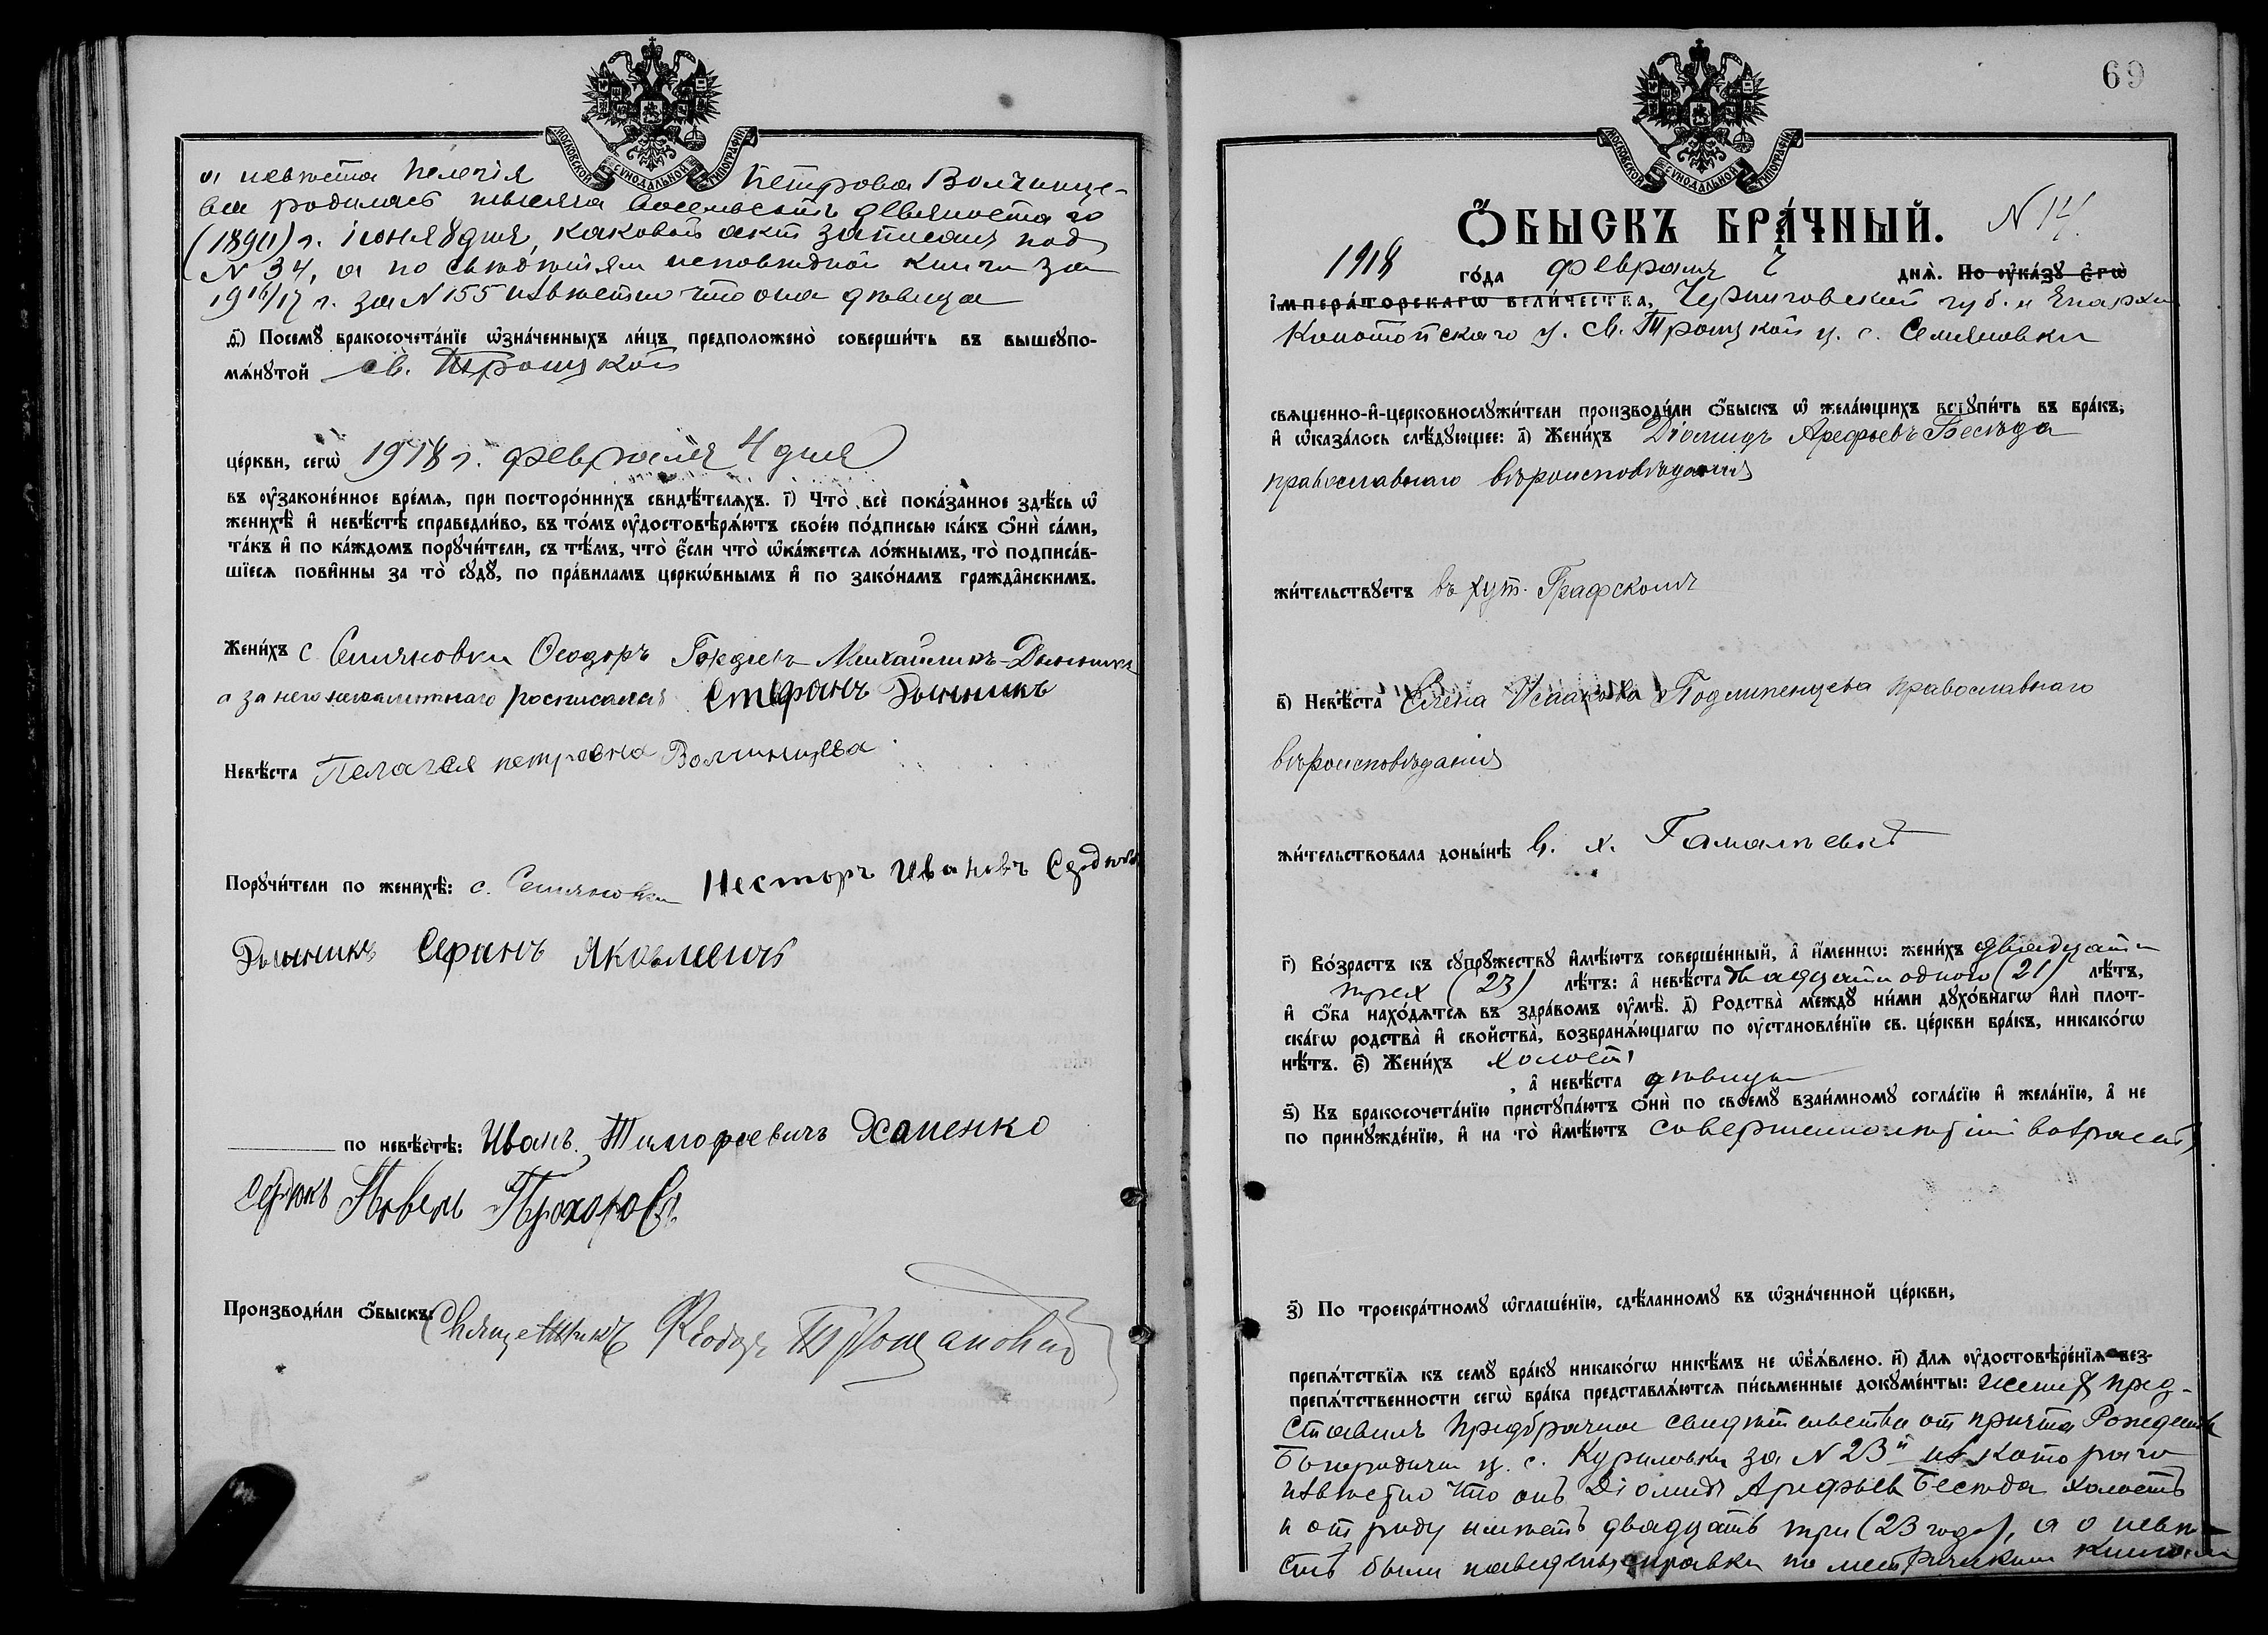 МОСКОВСКОЙ СѴНОДАЛЬНОЙ ТИПОГРАФІИ
а невѣста Пелагія Петрова Волчинце-
ва родилась тысяча восемьсотъ девяноста го
г. іюня 8 дня, каковой актъ записанъ подъ
N 34, а по свѣдѣніямъ исповѣдной книги за
1916/17 г. за N 155 извѣстно что она дѣвица
д҃) Посемꙋ̀ бракосочета́нїе ѡ҆зна́ченныхъ ли́цъ предположено̀ соверши́ть въ вышеꙋпо-
мѧ́нꙋтой св. Троицкой
це́ркви, сегѡ̀ 1918 г. февраля 4 дня
въ ᲂу҆законе́нное вре́мѧ, при посторо́ннихъ свидѣ́телѧхъ. і҃) Что̀ всѐ пока́занное здѣ́сь ѡ҆
женихѣ̀ и҆ невѣ́стѣ справедли́во, въ то́мъ ᲂу҆достовѣрѧ́ютъ свое́ю по́дписью ка́къ ѻ҆нѝ са́ми,
та́къ и҆ по ка́ждомъ порꙋчи́тели, съ тѣ́мъ, что̀ є҆́сли что̀ ѡ҆ка́жетсѧ ло́жнымъ, то̀ подписа́в-
шїесѧ пови́нны за то̀ сꙋдꙋ̀, по пра́виламъ церкѡ́внымъ и҆ по зако́намъ гражда́нскимъ.
Жени́хъ с. Семяновки Ѳеодоръ Михайликъ-Дынникъ
а за него неграмотнаго росписался Стефанъ Дынникъ
Невѣ́ста Пелагея петровна Волчинцева
Порꙋчи́тели по женихѣ̀: с. Семяновки Несторъ Ивановъ Сердюкъ
Дынникъ Яковлевичъ
по невѣ́стѣ: Иванъ Тимофеевичъ Хаменко
Сердюкъ Павелъ Прохоровъ
Производи́ли ѻ҆́быскъ: Священникъ Ѳеодоръ
69
МОСКОВСКОЙ СѴНОДАЛЬНОЙ ТИПОГРАФІИ
Ѻ҆́БЫСКЪ БРА́ЧНЫЙ. N 14.
1918 го́да февраля дня̀. По ᲂу҆ка́зꙋ є҆гѡ̀
і҆мпера́торскагѡ вели́чества, Черниговской губ. и Епархіи
Конотопскаго у. Св. Троицкой ц. с. Семяновки
свѧщенно-и҆-церковнослꙋжи́тели производи́ли ѻ҆́быскъ ѡ҆ жела́ющихъ встꙋпи́ть въ бра́къ,
и҆ ѡ҆каза́лось слѣ́дꙋющее: а҃) Жени́хъ Діомидъ Арефьевъ Бесѣда
православнаго вѣроисповѣданія
жи́тельствꙋетъ въ хут. Графскомъ
в҃) Невѣ́ста Елена Исаакова Подлипенцева православнаго
вѣроисповѣданія
жи́тельствовала доны́нѣ в. х. Гамалѣевкѣ
г҃) Во́зрастъ къ сꙋпрꙋ́жествꙋ и҆мѣ́ютъ соверше́нный, а҆ и҆́меннѡ: жени́хъ двадцати
трех (23) лѣ́тъ: а҆ невѣ́ста двадцати одного (21) лѣ́тъ,
и҆ ѻ҆́ба нахо́дѧтсѧ въ здра́вомъ ᲂу҆мѣ̀. д҃) Родства̀ ме́ждꙋ ни́ми дꙋхо́внагѡ и҆лѝ плот-
ска́гѡ родства̀ и҆ свойства̀, возбранѧ́ющагѡ по ᲂу҆становле́нїю св. це́ркви бра́къ, никако́гѡ
нѣ́тъ. є҃) Жени́хъ холостъ
, а҆ невѣ́ста дѣвица
ѕ҃) Къ бракосочета́нїю пристꙋпа́ютъ ѻ҆нѝ по своемꙋ̀ взаи́мномꙋ согла́сїю и҆ жела́нїю, а҆ не
по принꙋжде́нїю, и҆ на то̀ и҆мѣ́ютъ совершеннолѣтній возрастъ
з҃) По троекра́тномꙋ ѡ҆глаше́нїю, сдѣ́ланномꙋ въ ѡ҆зна́ченной це́ркви,
препѧ́тствїѧ къ семꙋ̀ бра́кꙋ никако́гѡ никѣ́мъ не ѡ҆б̾ѧ́влено. и҃) Длѧ ᲂу҆достовѣре́нїѧ без-
препѧ́тственности сегѡ̀ бра́ка представлѧ́ютсѧ пи́сьменные докꙋме́нты: жених пред-
ставилъ предбрачное свидѣтельство от причта Рождество
Богородичн ц. с. Куриловки за N 23й из котораго
извѣстно что онъ Діомидъ Арефьев Бесѣда холостъ
и от роду имѣетъ двадцать три (23 года), а о невѣ-
стѣ были наведены справки по метрическим книгам